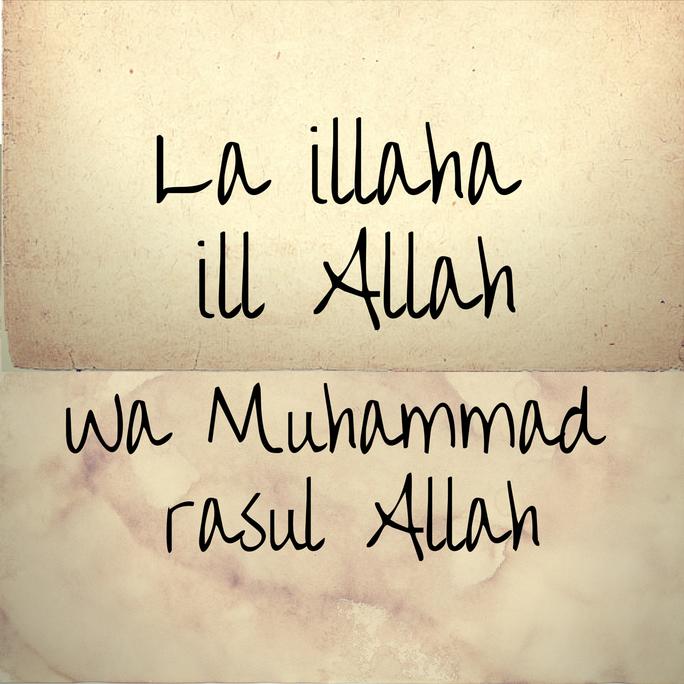 La illaha
ill Allah
Wa Muhammad
rasul Allah